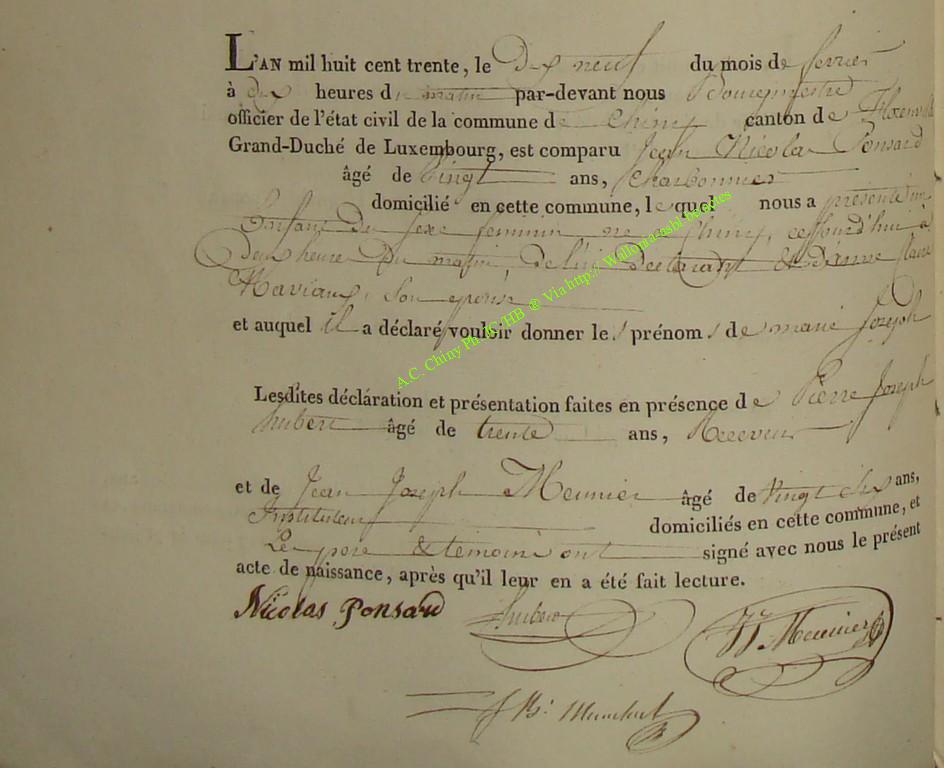 L'AN mil huit cent trente, le Dix neuf du mois de fevrier
à dix heures du matin par-devant nous Bourgmestre
officier de l'état civil de la commune de Chiny canton de Florenville
Grand-Duché de Luxembourg, est comparu Jean Nicolas Ponsard
âgé de vingt ans, charbonnier
domicilié en cette commune, lequel nous a présenté un
Enfant du sexe feminin né à Chiny, cejourd'hui à
Deux heure Du matin, de lui Declarant & d'anne
Maviaux, son epouse
et auquel il a déclaré vouloir donner les prénoms de marie Joseph
Lesdites déclaration et présentation faites en présence de Pierre Joseph
hubert âgé de trente ans, Receveur
et de Jean Joseph Meunier âgé de vingt six ans,
Instituteur domiciliés en cette commune, et
Le pere & temoins ont signé avec nous le présent
acte de naissance, après qu'il leur en a été fait lecture.
Nicolas Ponsard hubert JJ Meunier
A.C. Chiny Ph. JC/HB ® Via http:// Wallonia.asbl.be/actes